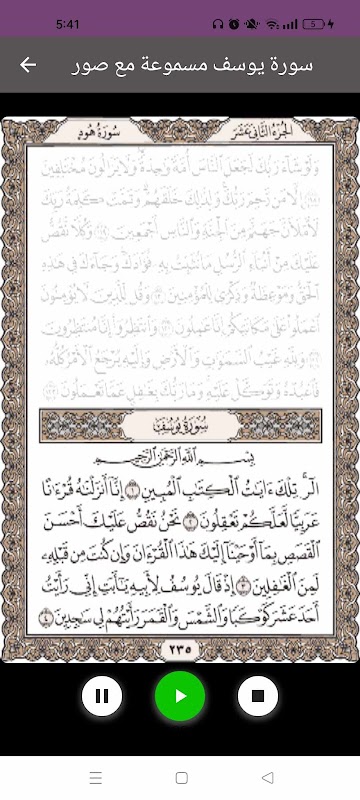 5:41
5
سورة يوسف مسموعة مع صور
الجزء الثاني عشر
سورة هود
ولو شاء ربك لجعل الناس أمة واحدة ولا يزالون مختلفين
﴿١١٨﴾ إلا من رحم ربك ولذلك خلقهم وتمت كلمة ربك
لأملأن جهنم من الجنة والناس أجمعين ﴿١١٩﴾ وكلا نقص
عليك من أنباء الرسل ما نثبت به فؤادك وجاءك في هذه
الحق وموعظة وذكرى للمؤمنين ﴿١٢٠﴾ وقل للذين لا يؤمنون
اعملوا على مكانتكم إنا عاملون ﴿١٢١﴾ وانتظروا إنا منتظرون
﴿١٢٢﴾ ولله غيب السموات والأرض وإليه يرجع الأمر كله
فاعبده وتوكل عليه وما ربك بغافل عما تعملون ﴿١٢٣﴾
سورة يوسف
بِسْمِ اللَّهِ الرَّحْمَنِ الرَّحِيمِ
الٓر تِلْكَ ءَايَٰتُ ٱلْكِتَٰبِ ٱلْمُبِينِ ﴿١﴾ إِنَّآ أَنزَلْنَٰهُ قُرْءَٰنًا
عَرَبِيًّا لَّعَلَّكُمْ تَعْقِلُونَ ﴿٢﴾ نَحْنُ نَقُصُّ عَلَيْكَ أَحْسَنَ
ٱلْقَصَصِ بِمَآ أَوْحَيْنَآ إِلَيْكَ هَٰذَا ٱلْقُرْءَانَ وَإِن كُنتَ مِن قَبْلِهِۦ
لَمِنَ ٱلْغَٰفِلِينَ ﴿٣﴾ إِذْ قَالَ يُوسُفُ لِأَبِيهِ يَٰٓأَبَتِ إِنِّى رَأَيْتُ
أَحَدَ عَشَرَ كَوْكَبًا وَٱلشَّمْسَ وَٱلْقَمَرَ رَأَيْتُهُمْ لِى سَٰجِدِينَ ﴿٤﴾
٢٣٥